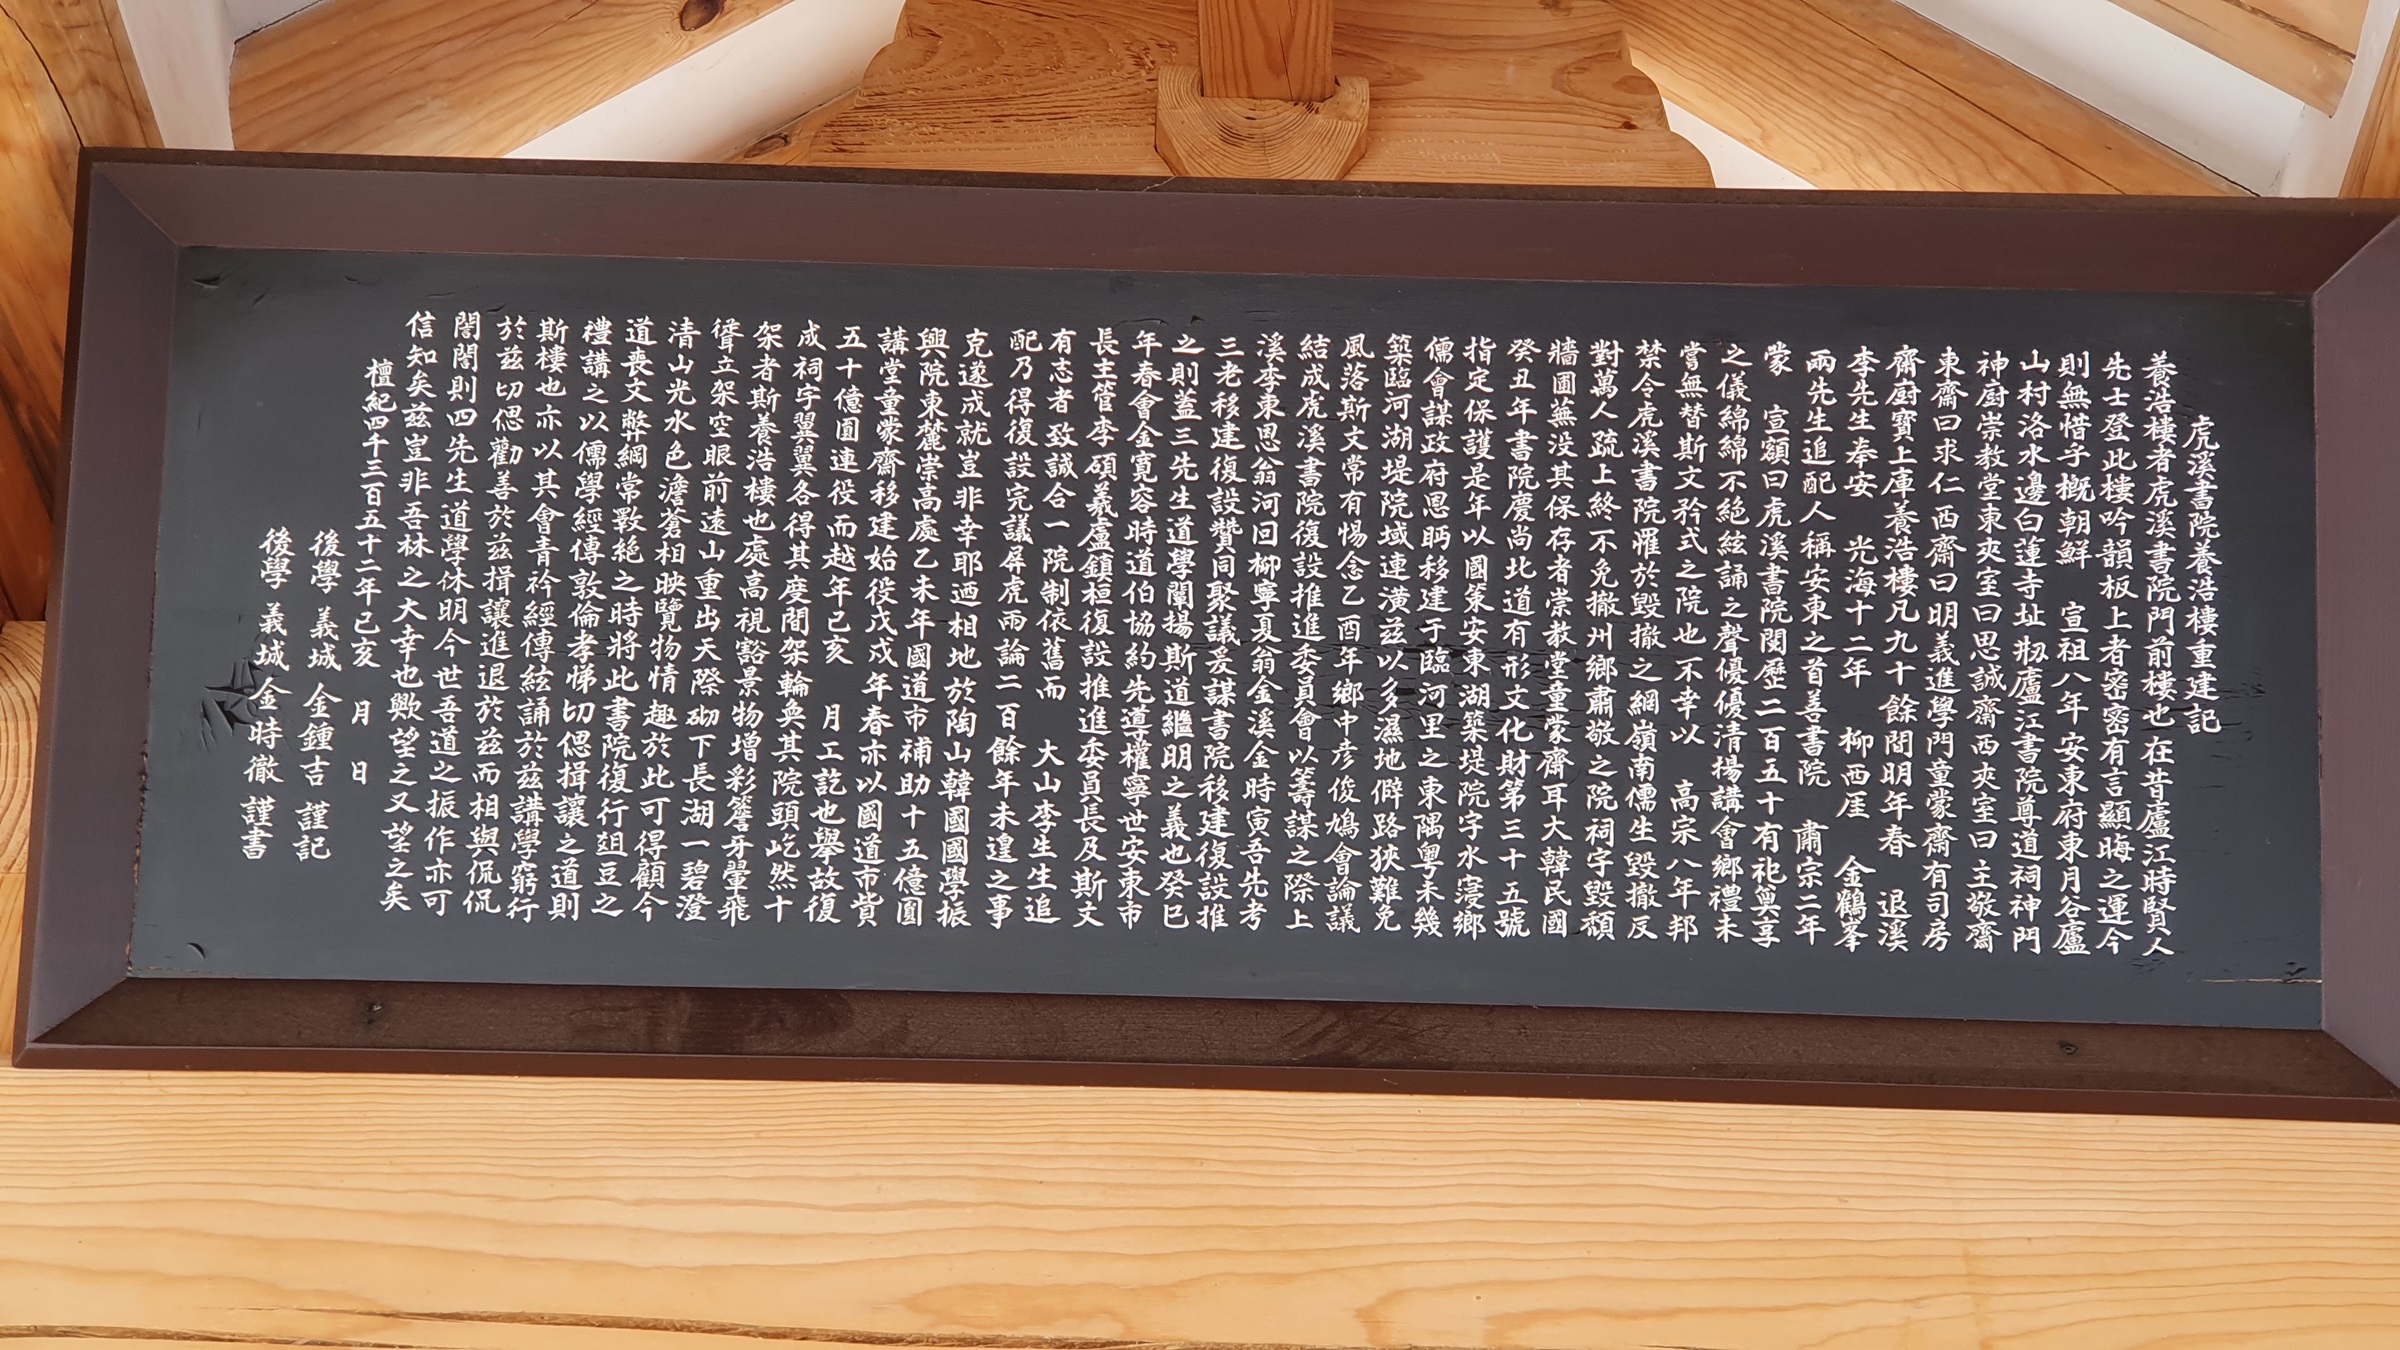 虎溪書院養浩樓重建記
養浩樓者虎溪書院門前樓也在昔廬江時賢人
先士登此樓吟韻板上者密密有言顯晦之運今
則無惜乎槪朝鮮 宣祖八年安東府東月谷廬
山村洛水邊白蓮寺址刱廬江書院尊道祠神門
神廚崇敎堂東夾室曰思誠齋西夾室曰主敬齋
東齋曰求仁西齋曰明義進學門童蒙齋有司房
齋廚寶上庫養浩樓凡九十餘間明年春 退溪
李先生奉安 光海十二年 柳西厓 金鶴峯
兩先生追配人稱安東之首善書院 肅宗二年
蒙 宣額曰虎溪書院閱歷二百五十有祀奠享
之儀綿綿不絶絃誦之聲優優淸揚講會鄕禮未
嘗無替斯文矜式之院也不幸以 高宗八年邦
禁令虎溪書院罹於毀撤之網嶺南儒生毀撤反
對萬人疏上終不免撤州鄕肅敬之院祠宇毀頹
牆圃蕪没其保存者崇敎堂童蒙齋耳大韓民國
癸丑年書院慶尚北道有形文化財第三十五號
指定保護是年以國策安東湖築堤院宇水寖鄕
儒會謀政府恩眄移建于臨河里之東隅粵未幾
築臨河湖堤院域連潢茲以多濕地僻路狹難免
風落斯文常有惕念乙酉年鄕中彦俊鳩會論議
結成虎溪書院復設推進委員會以籌謀之際上
溪李東恩翁河回柳寧夏翁金溪金時寅吾先考
三老移建復設贊同聚議爰謀書院移建復設推
之則蓋三先生道學闡揚斯道繼明之義也癸巳
年春會金寬容時道伯協約先導權寧世安東市
長主管李碩義盧鎭桓復設推進委員長及斯文
有志者致誠合一院制依舊而 大山李生生追
配乃得復設完議屛虎兩論二百餘年未遑之事
克遂成就豈非幸耶迺相地於陶山韓國國學振
興院東麓崇高處乙未年國道市補助十五億圓
講堂童蒙齋移建始役戊戌年春亦以國道市貲
五十億圓連役而越年己亥 月工訖也舉故復
成祠宇翼翼各得其度間架輪奐其院頭屹然十
架者斯養浩樓也處高視豁景物增彩簷牙翬飛
聳立架空眼前遠山重出天際砌下長湖一碧澄
淸山光水色澹蒼相映覽物情趣於此可得顧今
道喪文弊綱常斁絶之時將此書院復行俎豆之
禮講之以儒學經傳敦倫孝悌切偲揖讓之道則
斯樓也亦以其會靑衿經傳絃誦於茲講學窮行
於茲切偲勸善於茲揖讓進退於茲而相與侃侃
誾誾則四先生道學休明今世吾道之振作亦可
信知矣茲豈非吾林之大幸也歟望之又望之矣
檀紀四千三百五十二年己亥 月 日
後學 義城 金鍾吉 謹記
後學 義城 金時徹 謹書